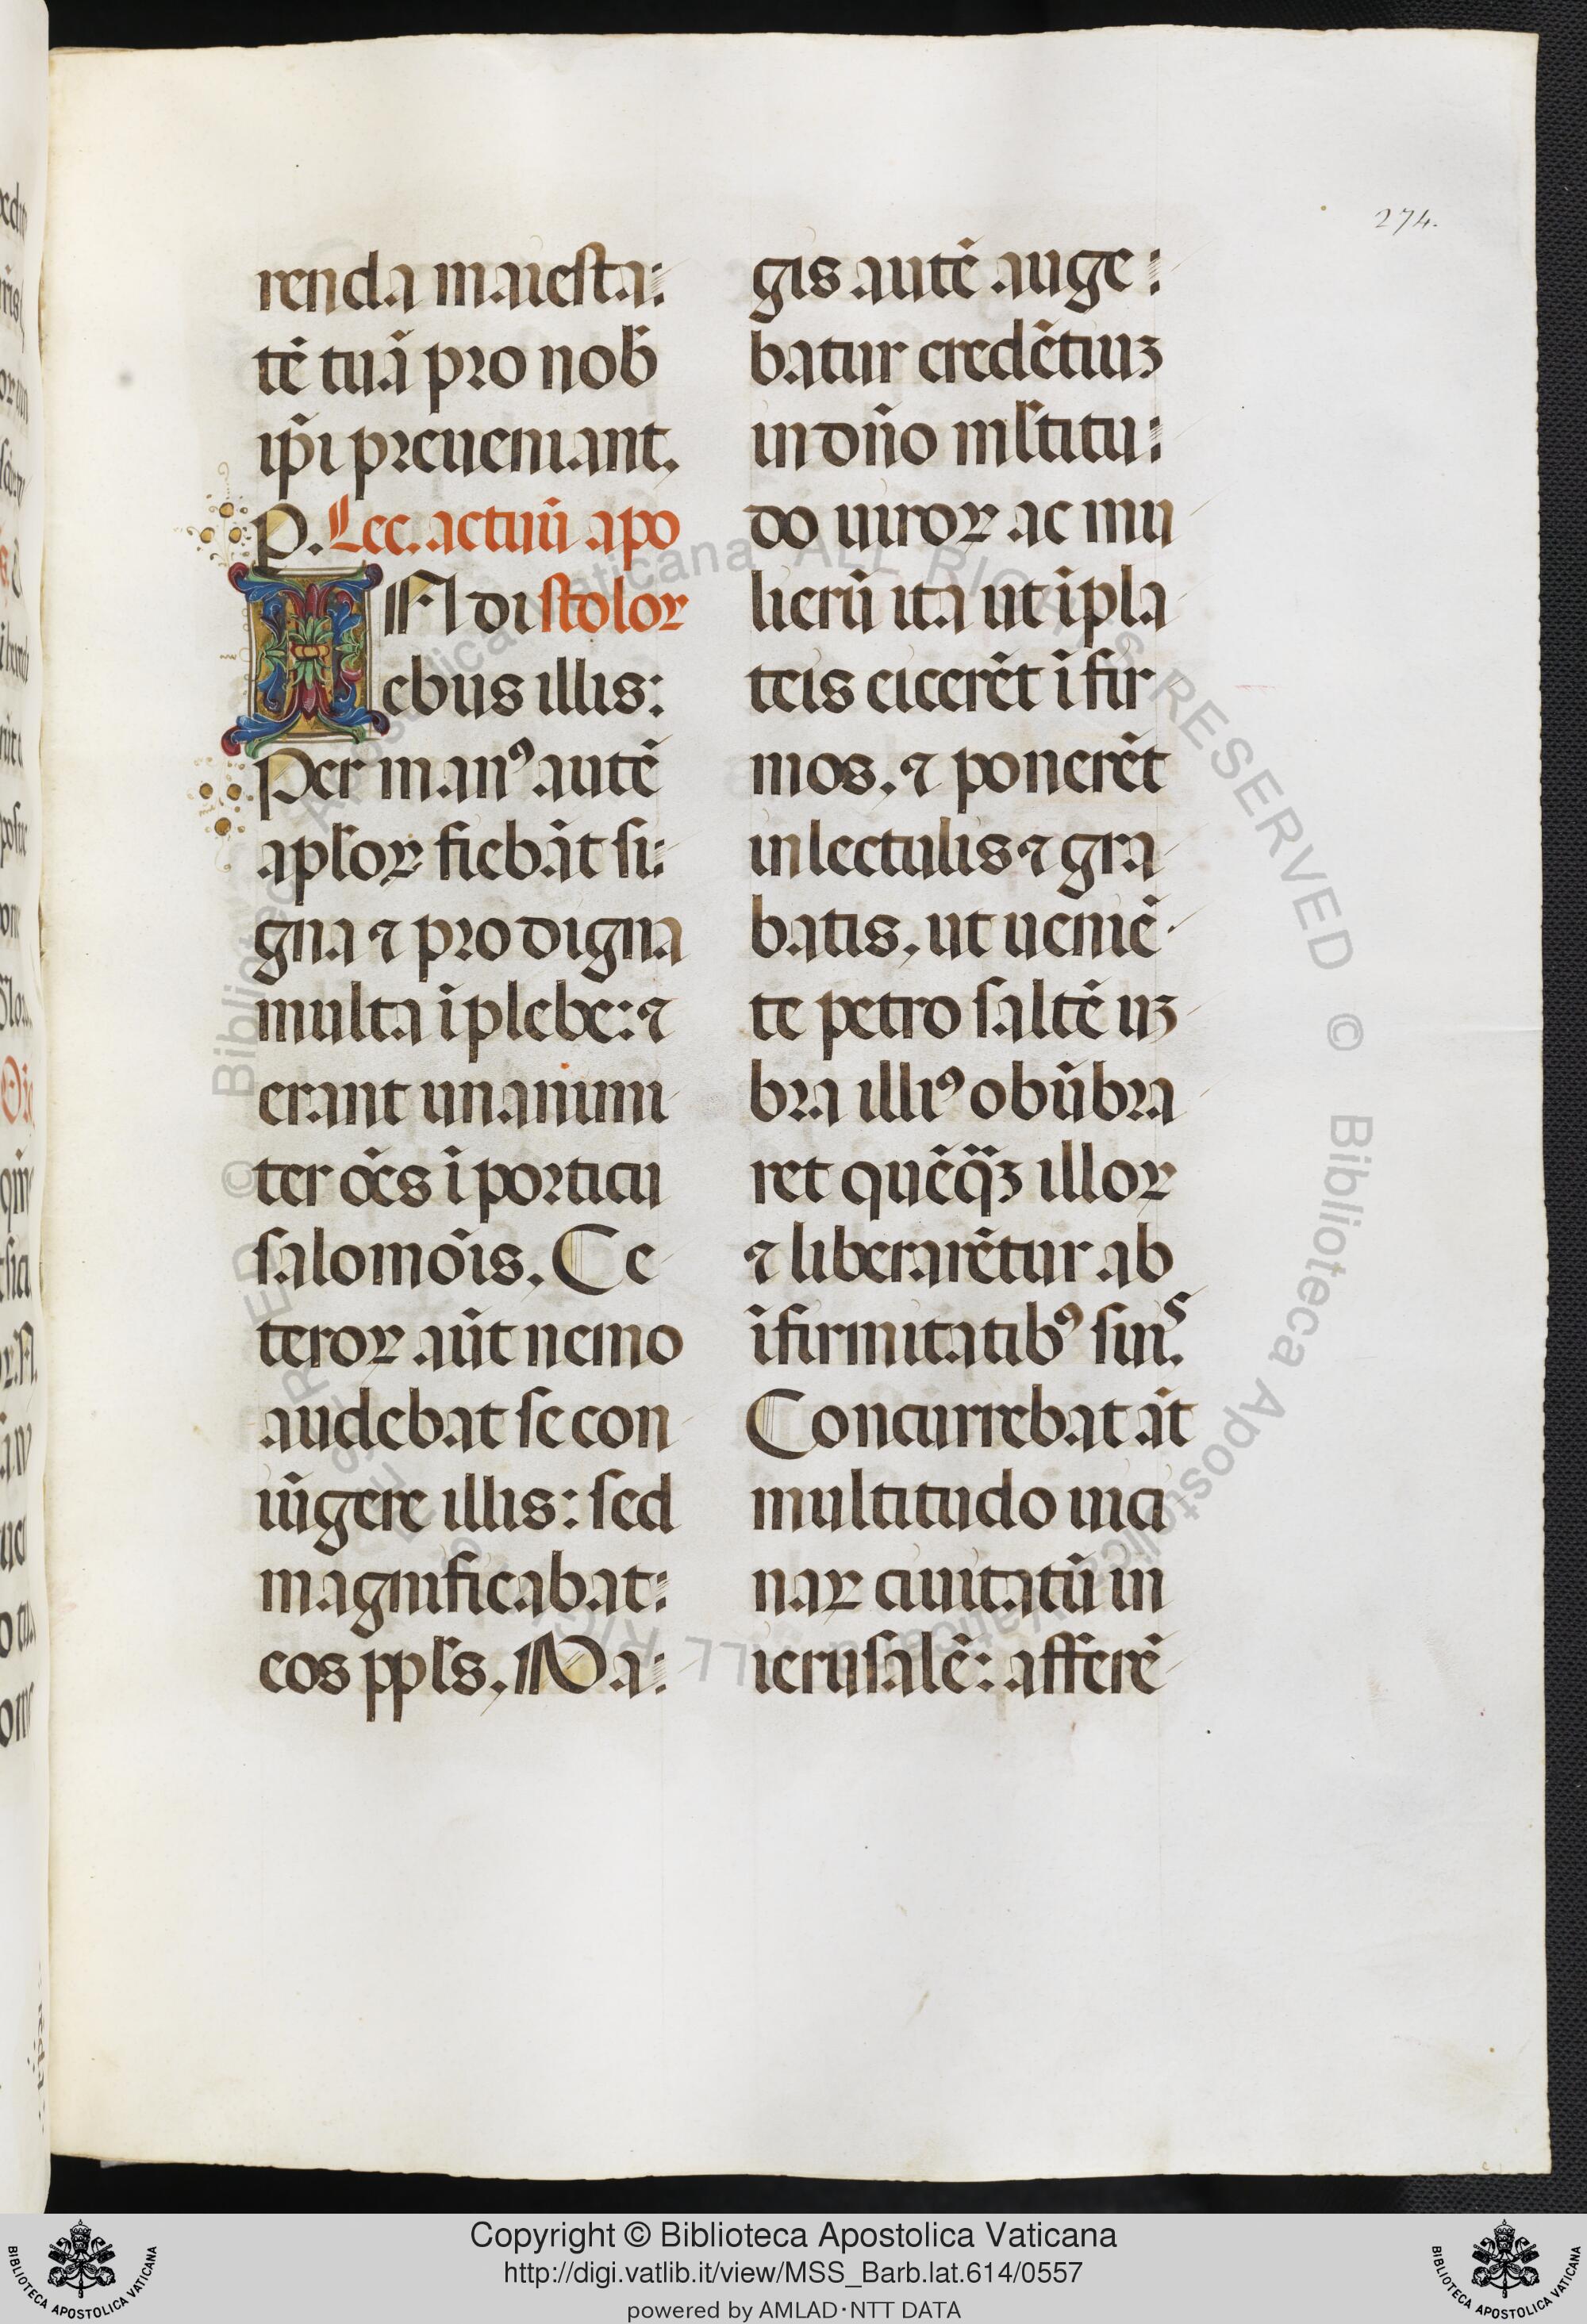 274.
renda maiesta:
tē tuā pro nob̄
ip̄i preueniant.
P. Lec. actuū apo
IN di stoloꝝ
ebus illis:
Per manꝰ autē
apl̄oꝝ fiebāt si:
gna ⁊ prodigna
multa ī plebe: ⁊
erant unanimi
ter oēs ī porticu
salomōis. Ce
teroꝝ aūt nemo
audebat se con
iūgere illis: sed
magnificabat:
eos ppl̄s. Ma:
gis autē auge:
batur credētiuꝫ
in dn̄o ml̄titu:
do uiroꝝ ac mu
lierū ita ut ī pla
teis eicerēt ī fir
mos. ⁊ ponerēt
in lectulis ⁊ gra
batis. ut ueniē
te petro saltē uꝫ
bra illiꝰ obūbra
ret quēq̄ꝫ illoꝝ
⁊ liberarētur ab
ī firmitatibꝰ suis.
Concurrebat āt
multitudo uici
naꝝ ciuitatū in
ierusalē: afferē
Copyright © Biblioteca Apostolica Vaticana
http://digi.vatlib.it/view/MSS_Barb.lat.614/0557
powered by AMLAD·NTT DATA
BIBLIOTECA APOSTOLICA VATICANA
BIBLIOTECA APOSTOLICA VATICANA